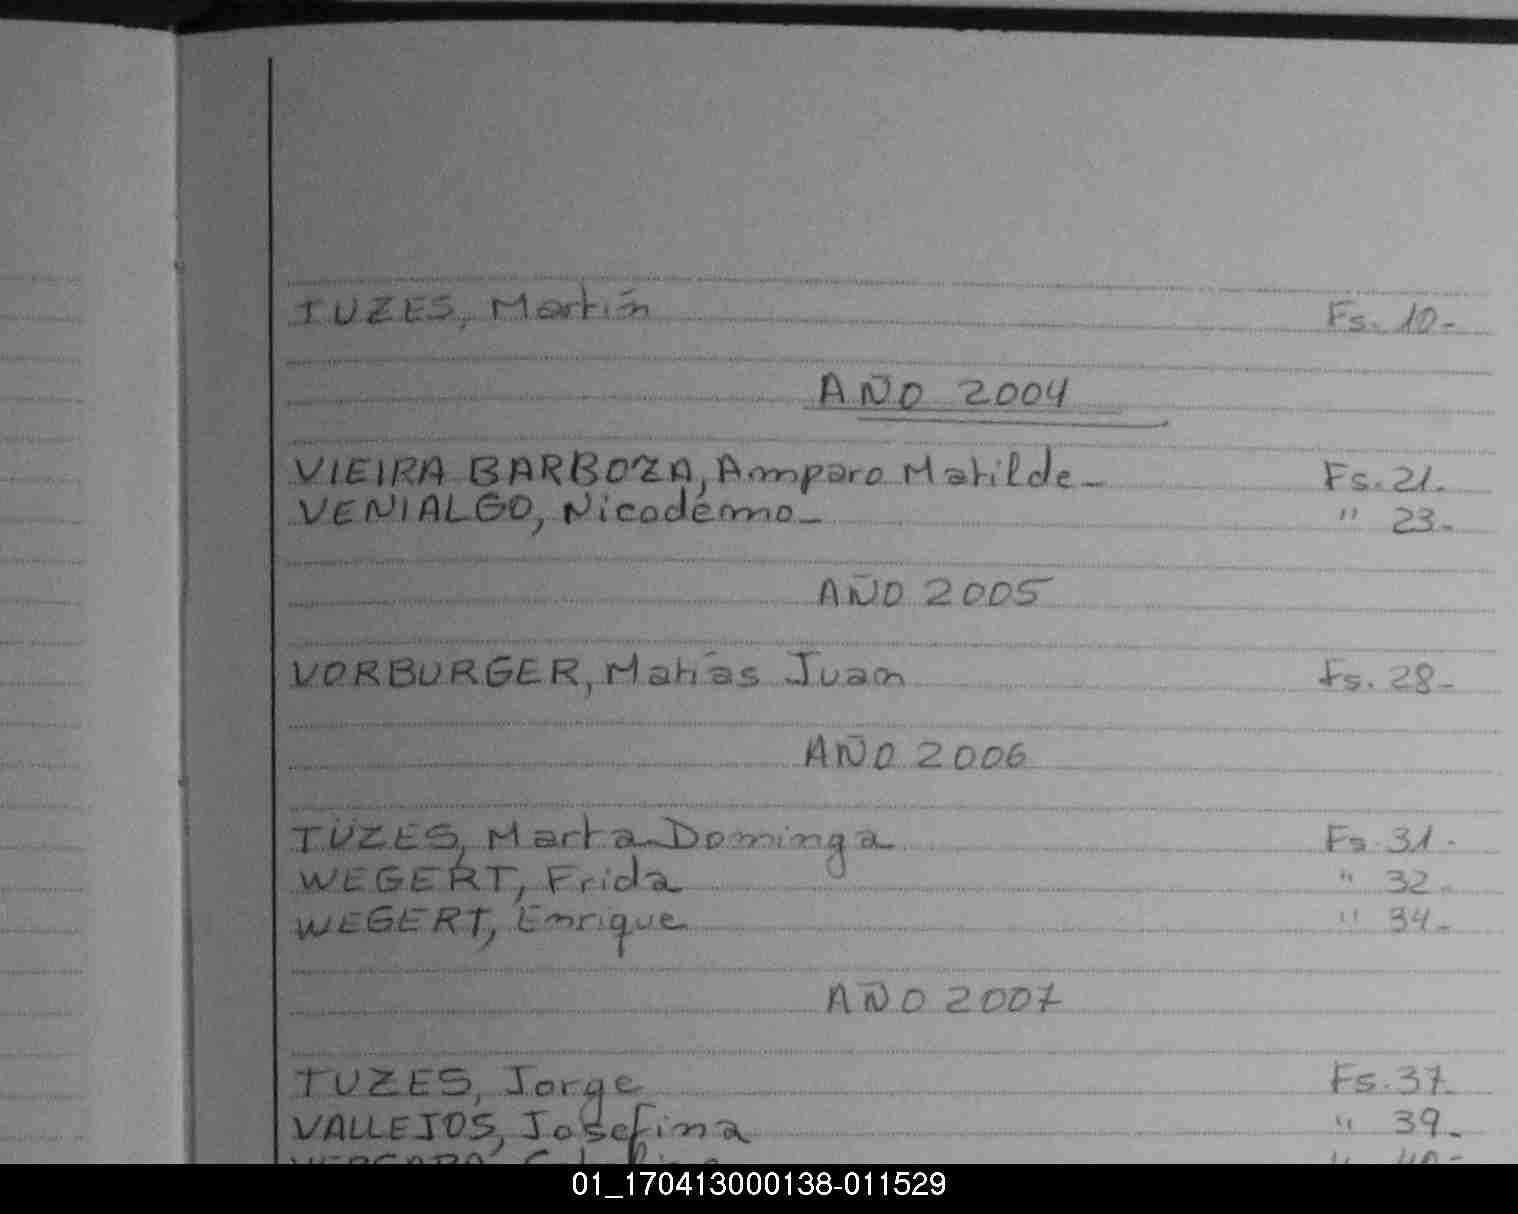 TUZES, Martín Fs. 10-
AÑO 2004
VIEIRA BARBOZA, Amparo Matilde- Fs. 21.
VENIALGO, Nicodémo- " 23-
AÑO 2005
VORBURGER, Matías Juan Fs. 28-
AÑO 2006
TUZES, Marta Dominga Fs. 31-
WEGERT, Frida " 32.
WEGERT, Enrique " 34-
AÑO 2007
TUZES, Jorge Fs. 37-
VALLEJOS, Josefina " 39-
01_170413000138-011529